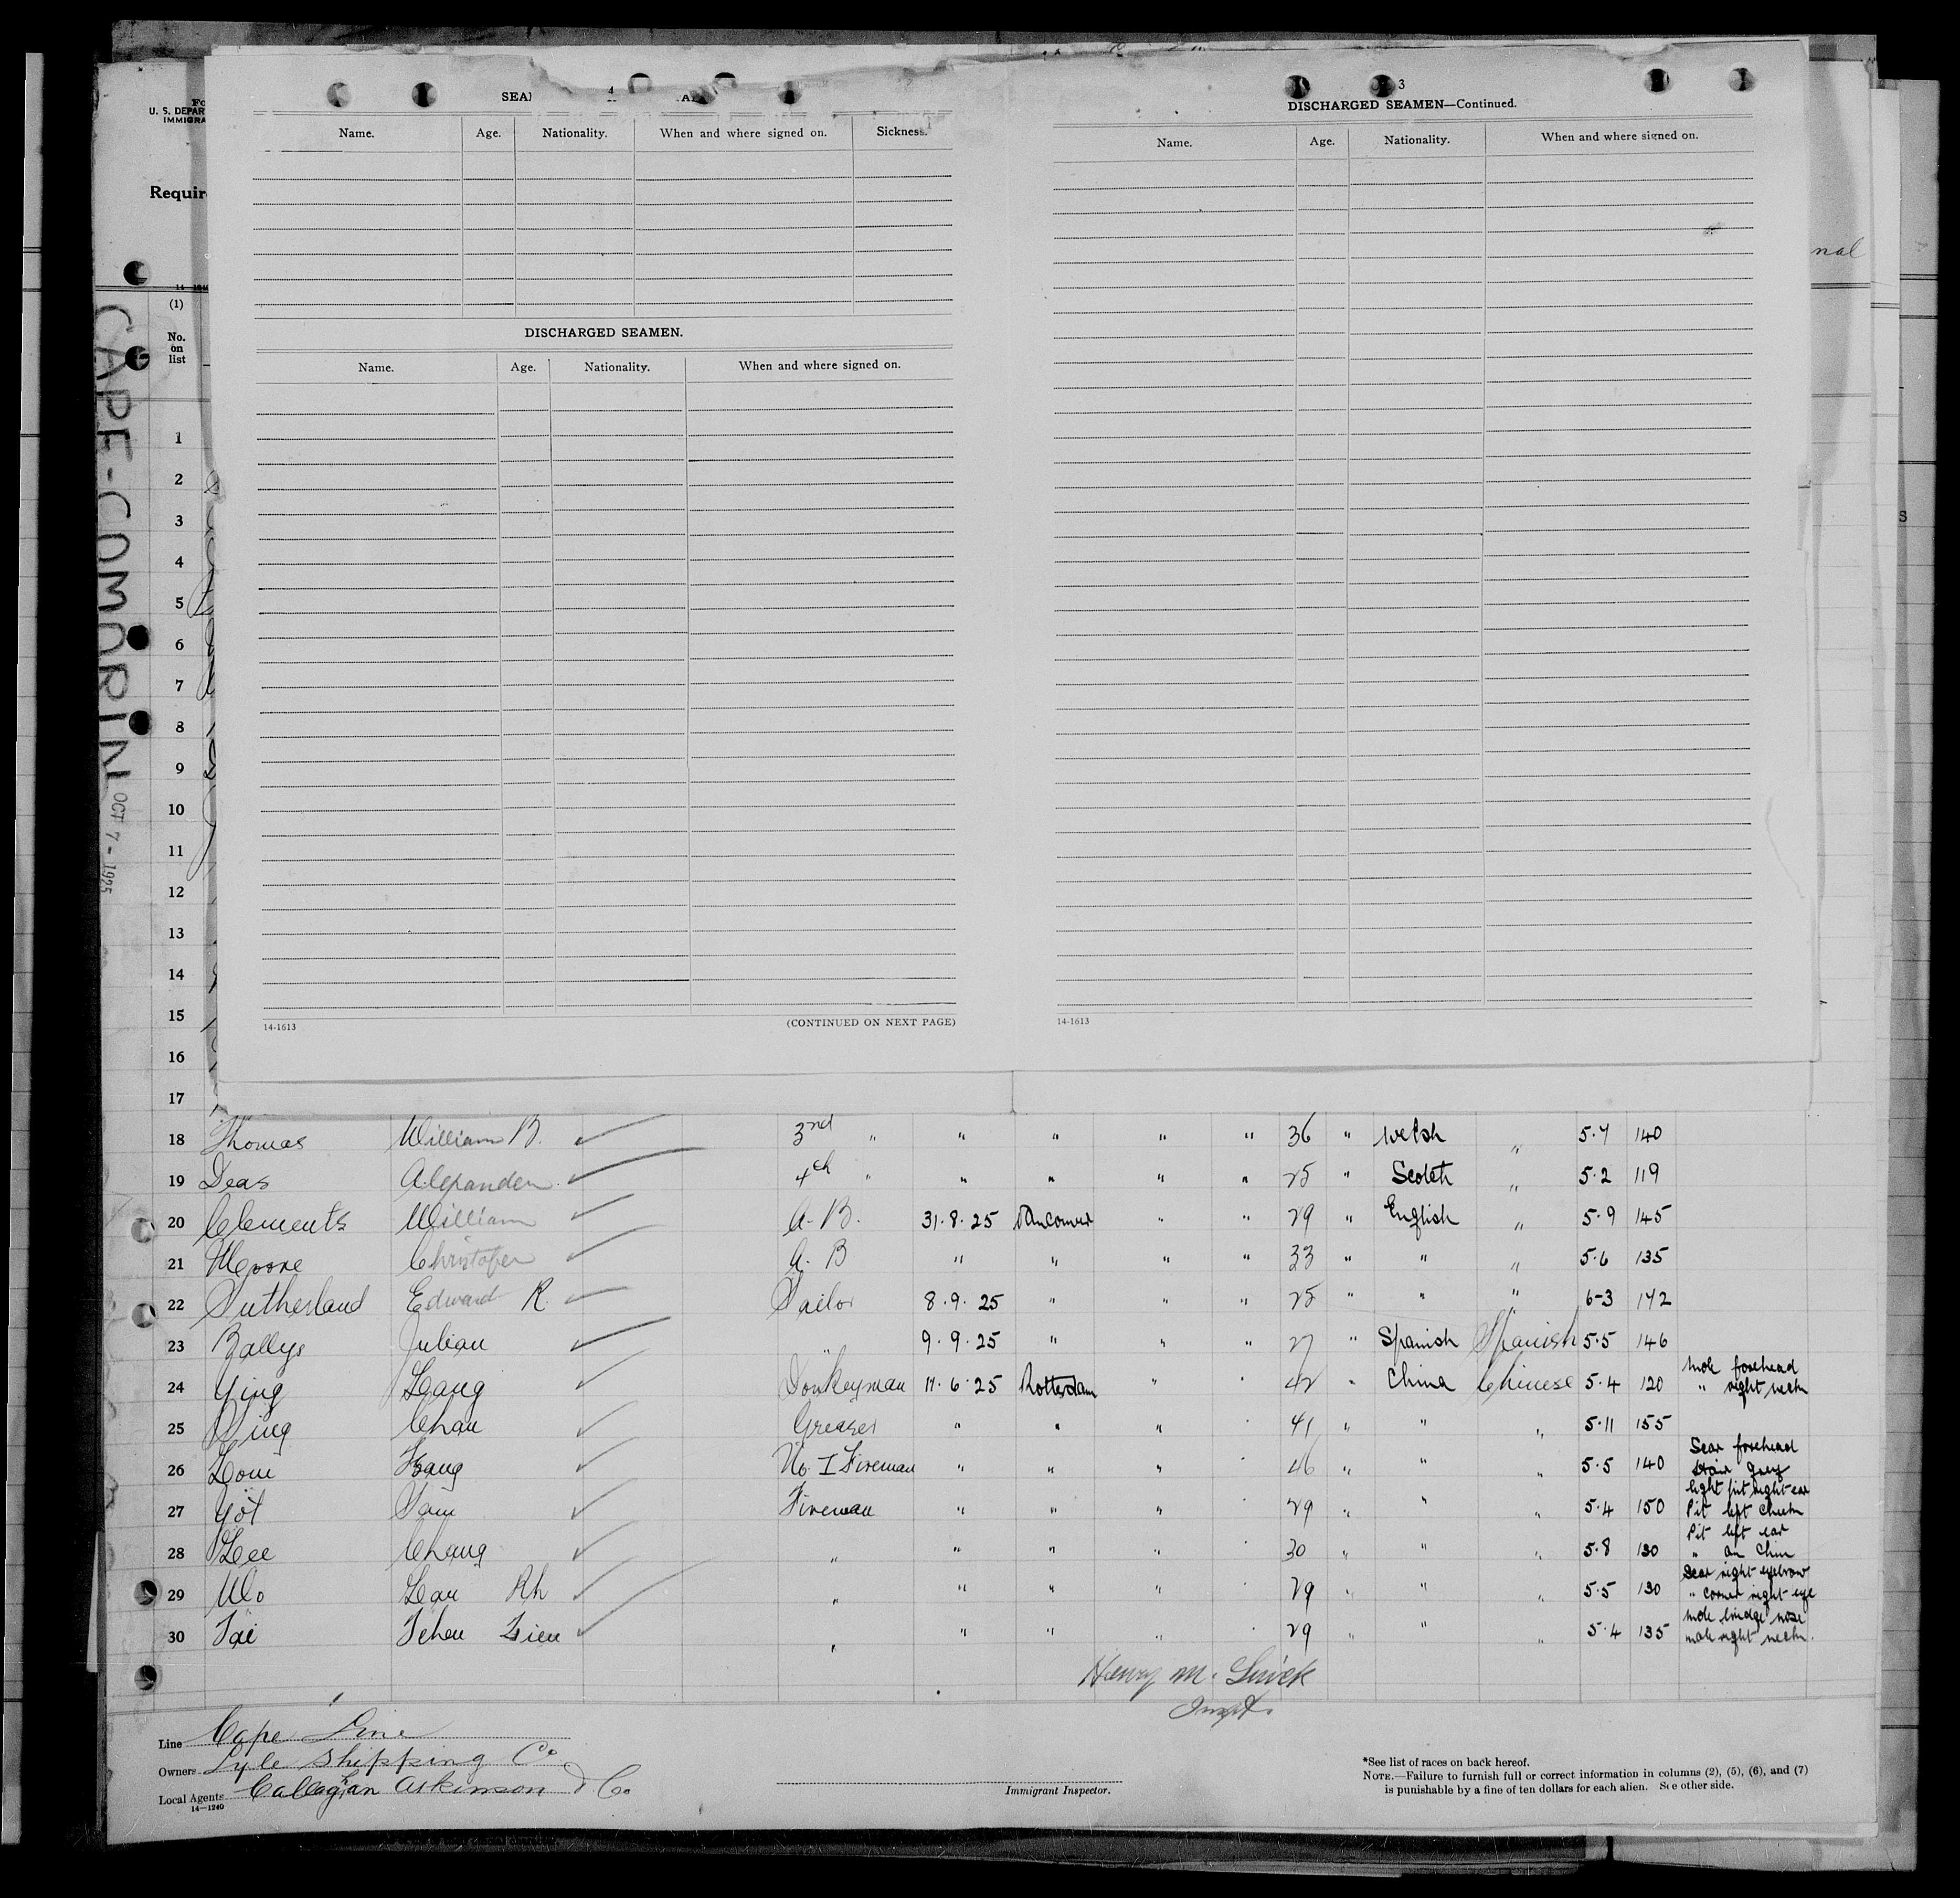 Fo
U. S. DEPAR
IMMIGRA
Requir
14
(1)
No.
on
list
CAPE-COMORIN OCT 7 - 1925
nal
S
SEA
4
Name. Age. Nationality. When and where signed on. Sickness.
DISCHARGED SEAMEN.
Name. Age. Nationality. When and where signed on.
14-1613 (CONTINUED ON NEXT PAGE)
3
DISCHARGED SEAMEN—Continued.
Name. Age. Nationality. When and where signed on.
14-1613
1
2
3
4
5
6
7
8
9
10
11
12
13
14
15
16
17
18 Thomas William B. 3rd " " " " " 36 " Welsh " 5.7 140
19 Deas Alexander 4th " " " " " 25 " Scotch " 5.2 119
20 Clements William A.B. 31.8.25 Vancouver " " 29 " English " 5.9 145
21 Moore Christofer A.B " " " " 33 " " " 5.6 135
22 Sutherland Edward R. Sailor 8.9.25 " " " 25 " " " 6-3 172
23 Ballys Julian " 9.9.25 " " " 27 " Spanish Spanish 5.5 146
24 Ying Lang Donkeyman 17.6.25 Rotterdam " " 42 " China Chinese 5.4 120 mole forehead
" right neck
25 Ping Chan Greaser " " " " 41 " " " 5.11 155
26 Lom Kang No. 1 Fireman " " " " 46 " " " 5.5 140 Scar forehead
Hair grey
27 Yot Sam Fireman " " " " 29 " " " 5.4 150 light pit right ear
Pit left cheek
28 Lee Chang " " " " " 30 " " " 5.8 130 Pit left ear
" on Chin
29 Wo Lau Ah " " " " " 29 " " " 5.5 130 Scar right eyebrow
" corner right eye
30 Tai Tchen Lieu " " " " " 29 " " " 5.4 135 mole bridge nose
mole right neck.
Henry M.
Inspt.
Line Cape Line
Owners Lyle Shipping Co.
Local Agents Callaghan Atkinson & Co
14—1240
Immigrant Inspector.
*See list of races on back hereof.
NOTE.—Failure to furnish full or correct information in columns (2), (5), (6), and (7)
is punishable by a fine of ten dollars for each alien. See other side.